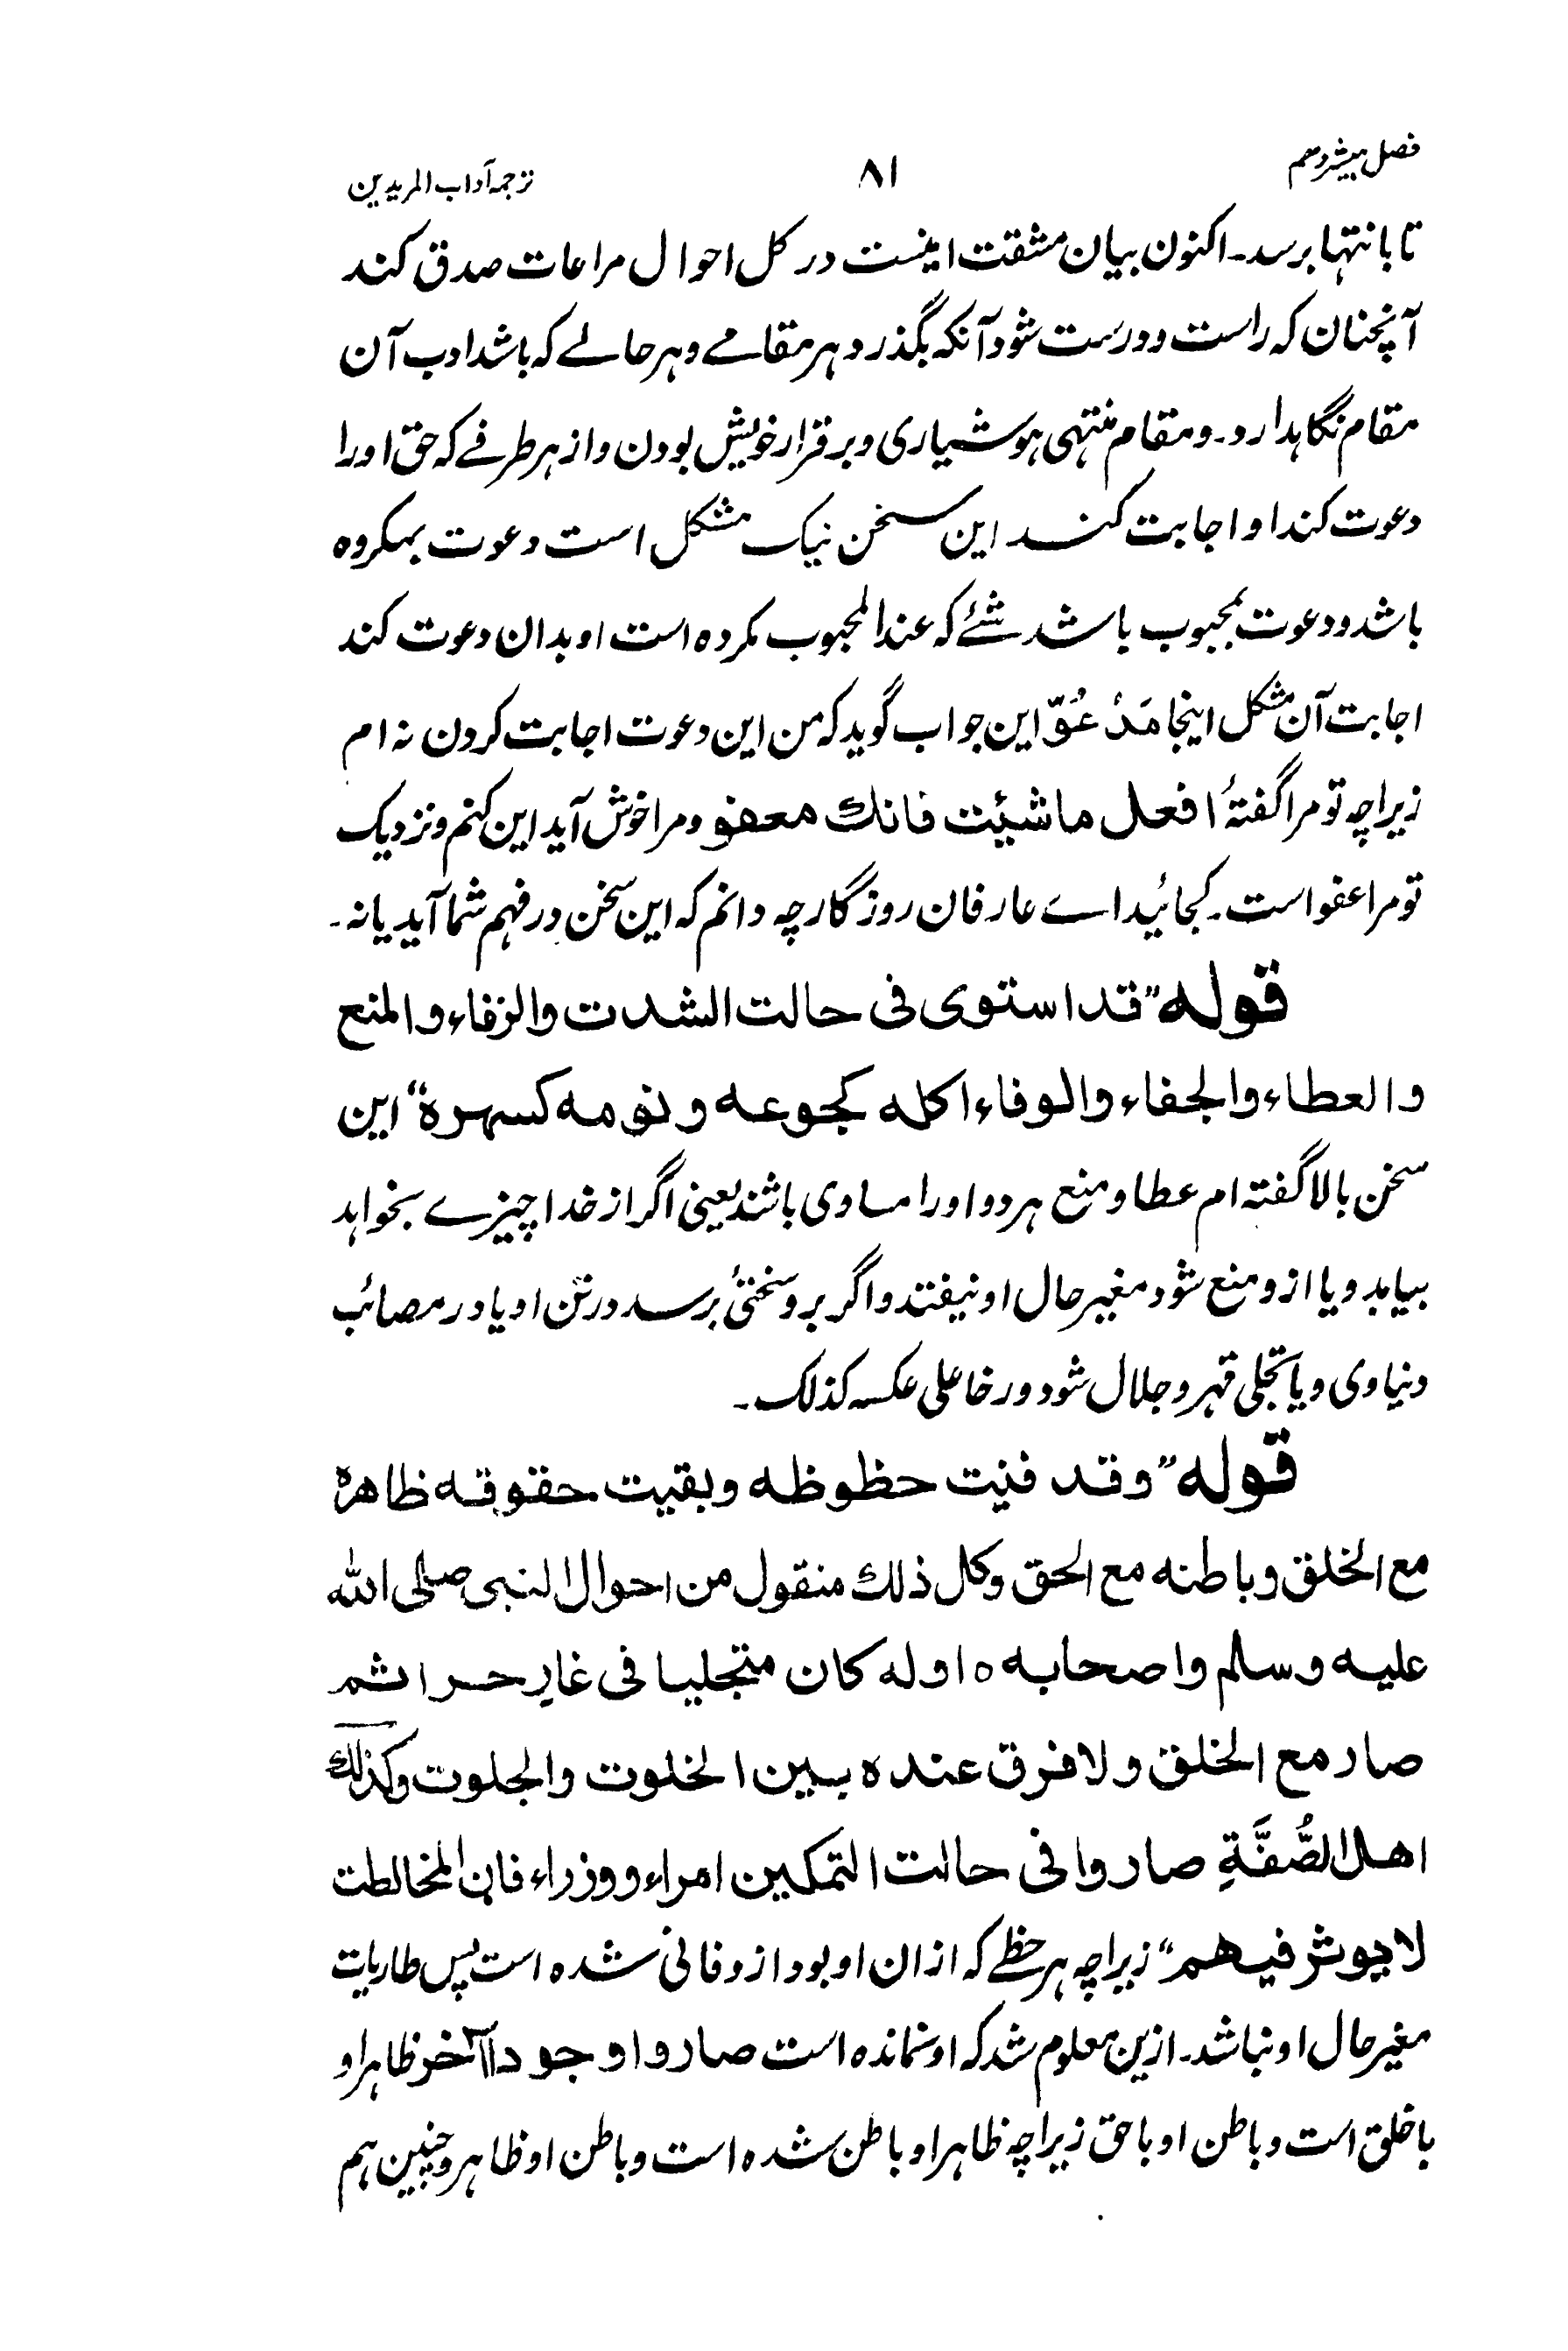 فصل هیشردهم ۸۱ ترجمہ آداب المریدین
تا بانتہا برسد۔ اکنون بیان مشقت اینست در کل احوال مراعات صدق کند
آنچنان کہ راست و درست شود آنکہ بگذرد ہر مقامے و ہر حالے کہ باشد ادب آن
مقام نگاہدارد۔ و مقام منتہی ہوشیاری و برقرار خویش بودن و از ہر طرفے کہ حق او را
دعوت کند او اجابت کند این سخن نیک مشکل است دعوت بمکروہ
باشد و دعوت بمحبوب باشد شئے کہ عند المحبوب مکروہ است او بدان دعوت کند
اجابت آن مشکل اینجا مَدْعُوّ این جواب گوید کہ من این دعوت اجابت کردن نہ ام
زیراچہ تو مرا گفتۂ افعل ما شئت فانك معفو و مرا خوش آید این کنم و نزدیک
تو مرا عفو است۔ کجائید اے عارفان روزگار چہ دانم کہ این سخن در فہم شما آید یا نہ۔
قوله ”قد استوی فی حالت الشدت والرفاء والمنع
والعطاء والجفاء والوفاء اکله کجوعه ونومه کسهره“ این
سخن بالا گفتہ ام عطا و منع ہر دو او را مساوی باشند یعنی اگر از خدا چیزے بخواہد
بیابد و یا ازو منع شود مغیر حال او نیفتد و اگر برو سختیٔ برسد در تن او یا در مصائب
دنیاوی و یا تجلی قہر و جلال شود و رخا علی عکسہ کذلک۔
قوله ”وقد فنیت حظوظه وبقیت حقوقه ظاهره
مع الخلق وباطنه مع الحق وکل ذلك منقول من احوال النبی صلی الله
علیه وسلم واصحابه ه اوله کان متجلیا فی غار حرا ثم
صار مع الخلق ولا فرق عنده بین الخلوت والجلوت وکذلك
اهل الصُّفَّةِ صاروا فی حالت التمکین امراء ووزراء فان المخالطت
لا یوثر فیهم“ زیراچہ ہر حظے کہ ازان او بود ازو فانی شدہ است پس طاریات
مغیر حال او نباشد۔ ازین معلوم شد کہ او نماندہ است صاروا وجودا آخر ظاہر او
با خلق است و باطن او با حق زیراچہ ظاہر او باطن شدہ است و باطن او ظاہر و چنین ہم